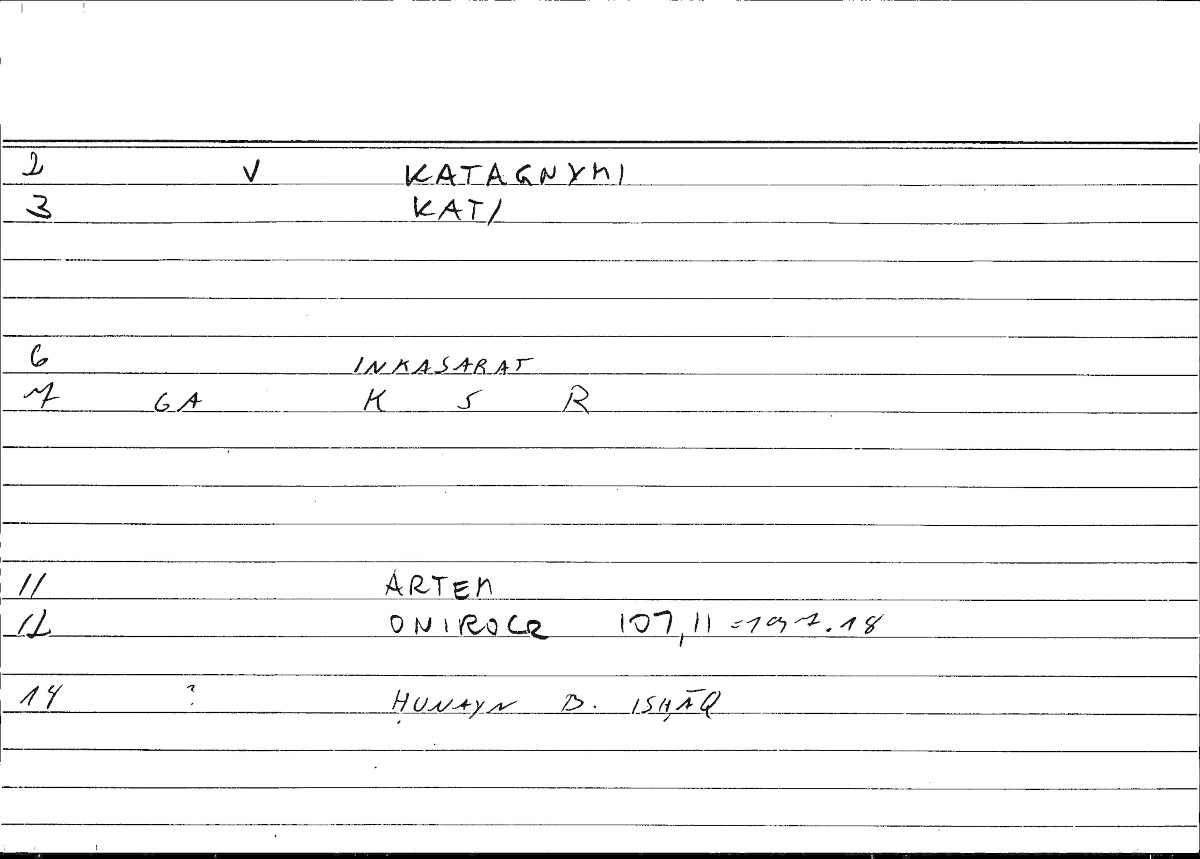 2 V KATAGNYMI
3 KATI
6 INKASARAT
7 GA K S R
11 ARTEM
12 ONIROCR 107,11 = 197.18
14 ? ḤUNAYN B. ISḤĀQ